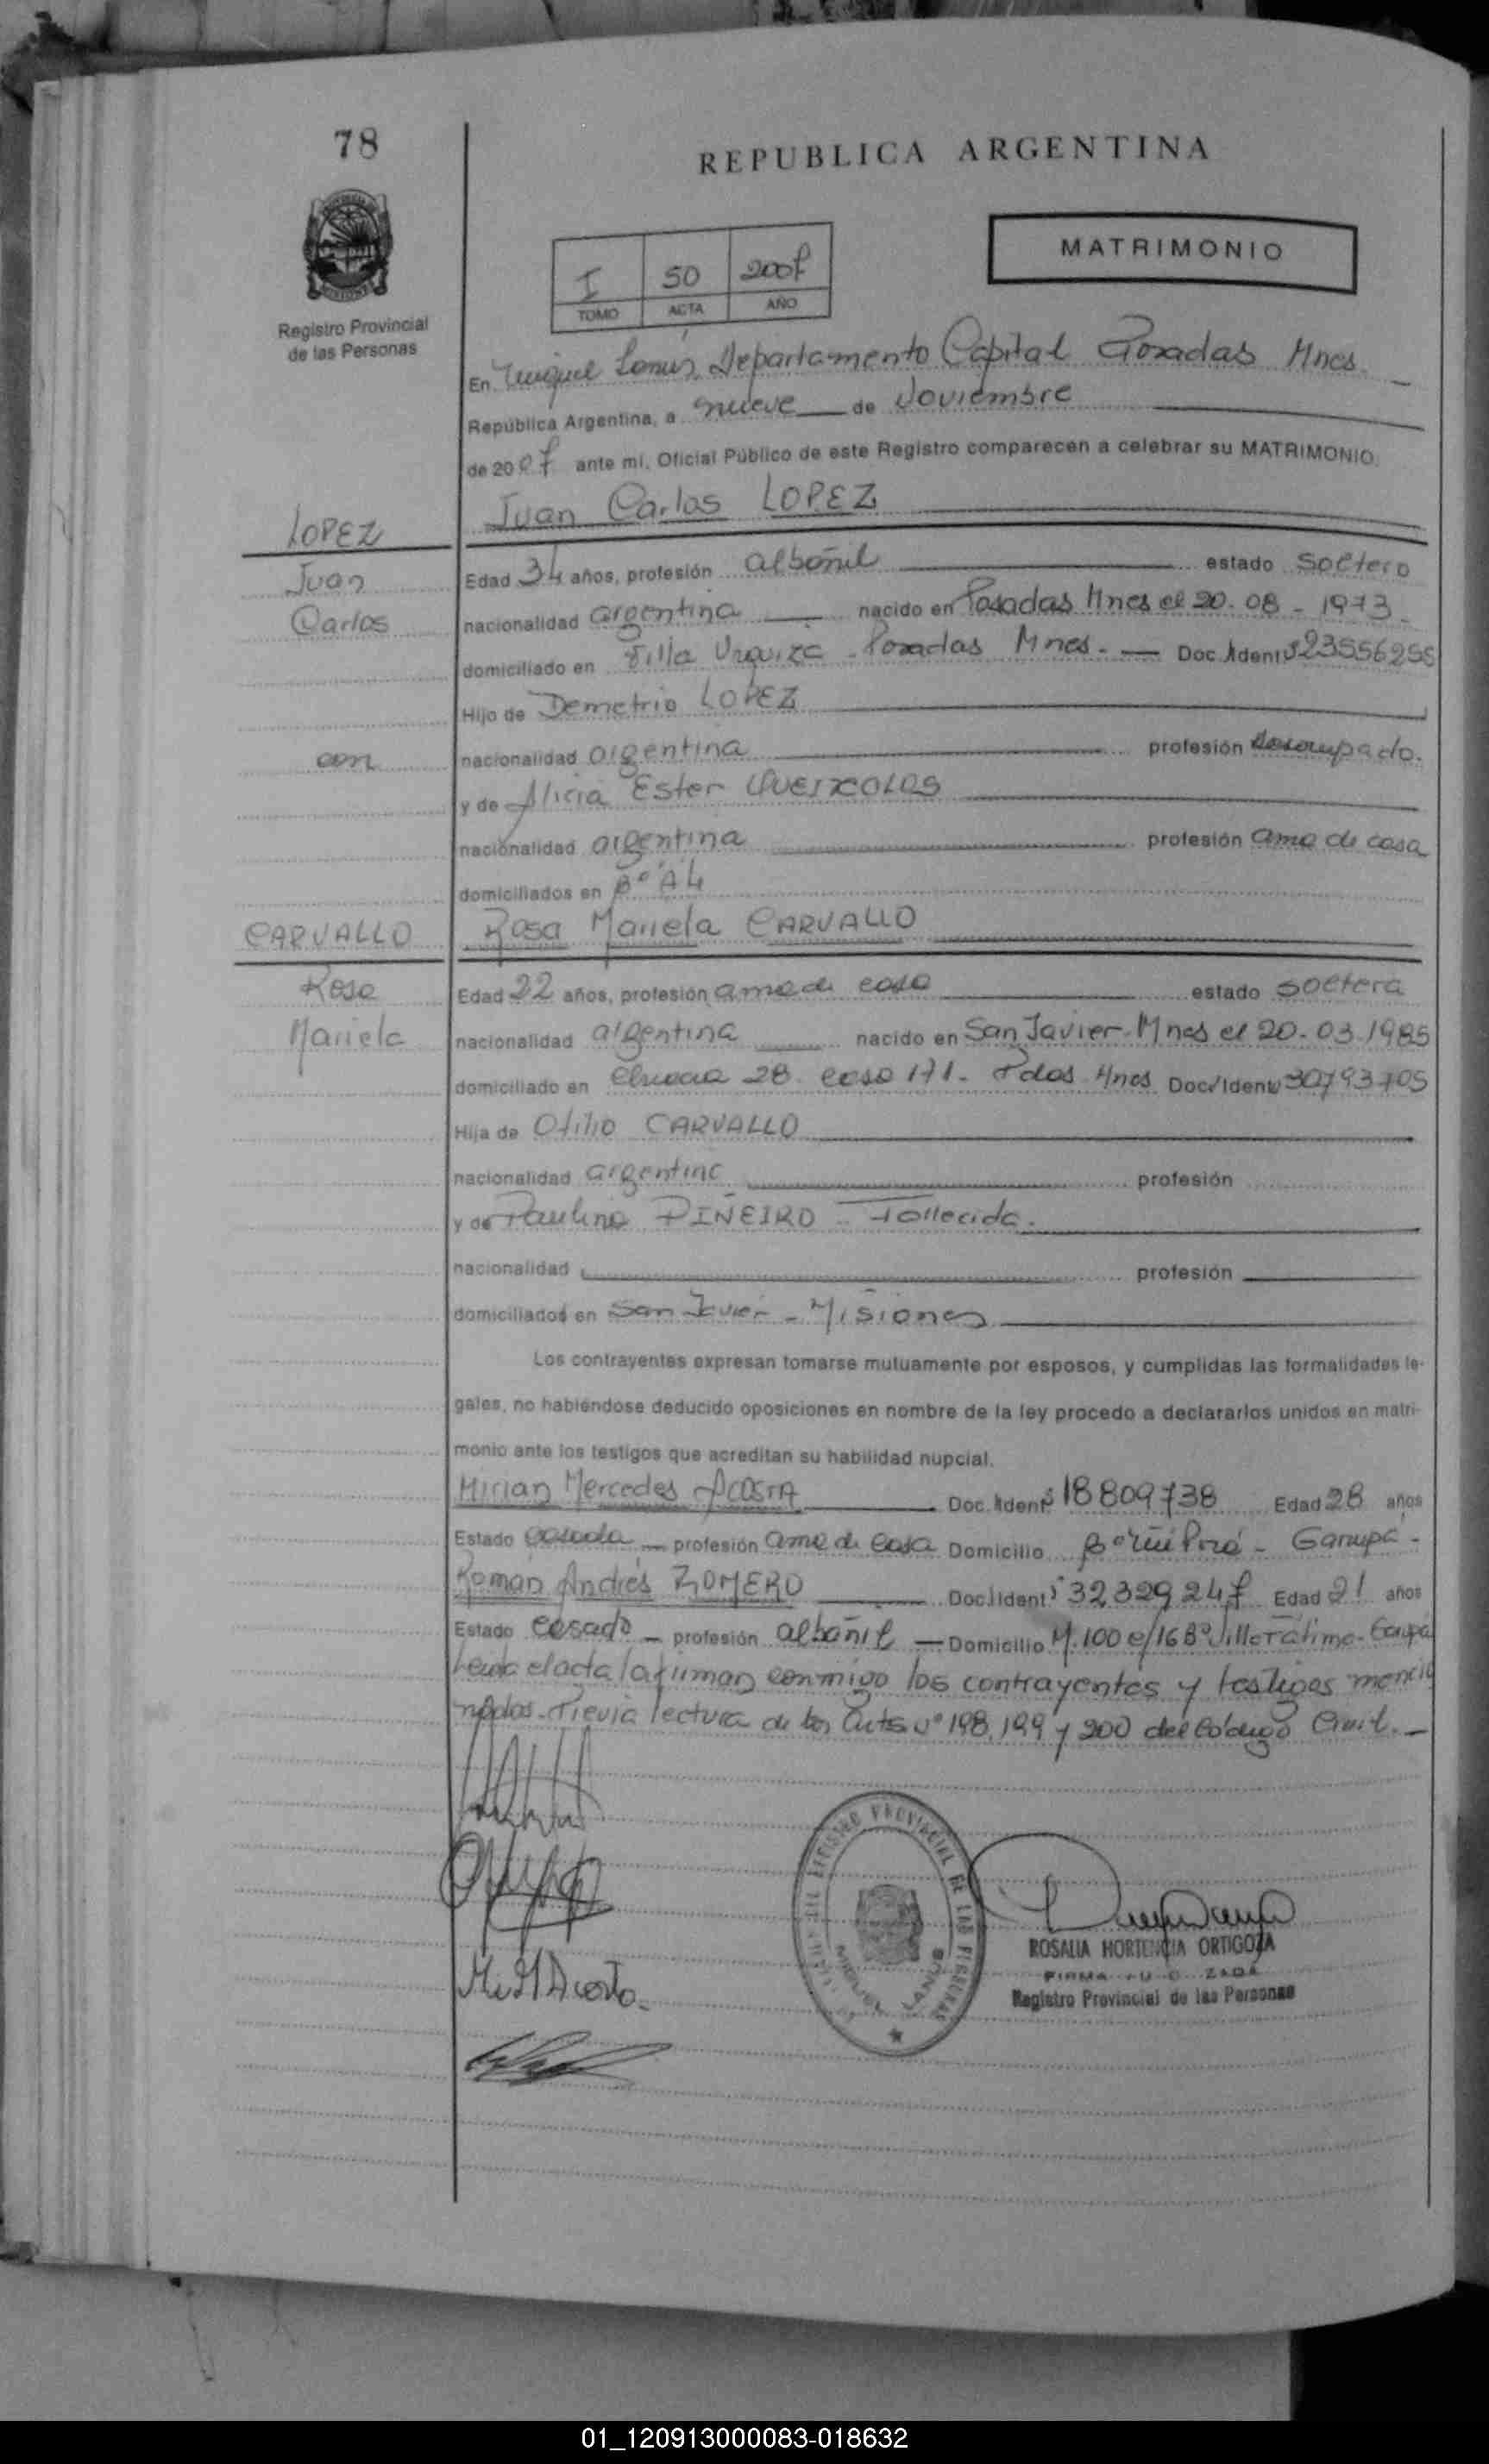 78
REPUBLICA ARGENTINA
MATRIMONIO
I 50 2007
TOMO ACTA AÑO
Registro Provincial
de las Personas
En Miguel Lanús, Departamento Capital Posadas Mnes.
República Argentina, a nueve de Noviembre
de 2007 ante mi, Oficial Público de este Registro comparecen a celebrar su MATRIMONIO
Juan Carlos LOPEZ
LOPEZ
Juan
Carlos
Edad 34 años, profesión albañil estado soltero
nacionalidad argentina nacido en Posadas Mnes el 20-08-1973.
domiciliado en Villa Urquiza - Posadas Mnes. Doc. Ident 23556255
Hijo de Demetrio LOPEZ
con
nacionalidad argentina profesión desocupado.
y de Alicia Ester
nacionalidad argentina profesión ama de casa
domiciliados en B° A4
CARVALLO
Rosa
Mariela
Rosa Mariela CARVALLO
Edad 22 años, profesión ama de casa estado soltera
nacionalidad argentina nacido en San Javier - Mnes el 20-03-1985
domiciliado en Chacra 28 casa 171 - Pdas Mnes Doc. Ident 30793705
Hija de Otilio CARVALLO
nacionalidad argentina profesión
y de Paulina PIÑEIRO - Fallecida.
nacionalidad profesión
domiciliados en San Javier - Misiones
Los contrayentes expresan tomarse mutuamente por esposos, y cumplidas las formalidades le-
gales, no habiéndose deducido oposiciones en nombre de la ley procedo a declararlos unidos en matri-
monio ante los testigos que acreditan su habilidad nupcial.
Mirian Mercedes ACOSTA Doc. Ident 18809738 Edad 28 años
Estado casada profesión ama de casa Domicilio B° Ñu Porá - Garupá -
Román Andrés ROMERO Doc. Ident 32329247 Edad 21 años
Estado casado profesión albañil Domicilio M.100 c/16 B° Villa Fátima - Garupá
Leída el acta la firman conmigo los contrayentes y testigos mencio
nados. Previa lectura de los Arts. N° 198, 199 y 200 del Código Civil.
M. M Acosta
REGISTRO PROVINCIAL DE LAS PERSONAS
MIGUEL LANUS
ROSALIA HORTENCIA ORTIGOZA
Registro Provincial de las Personas
01_120913000083-018632